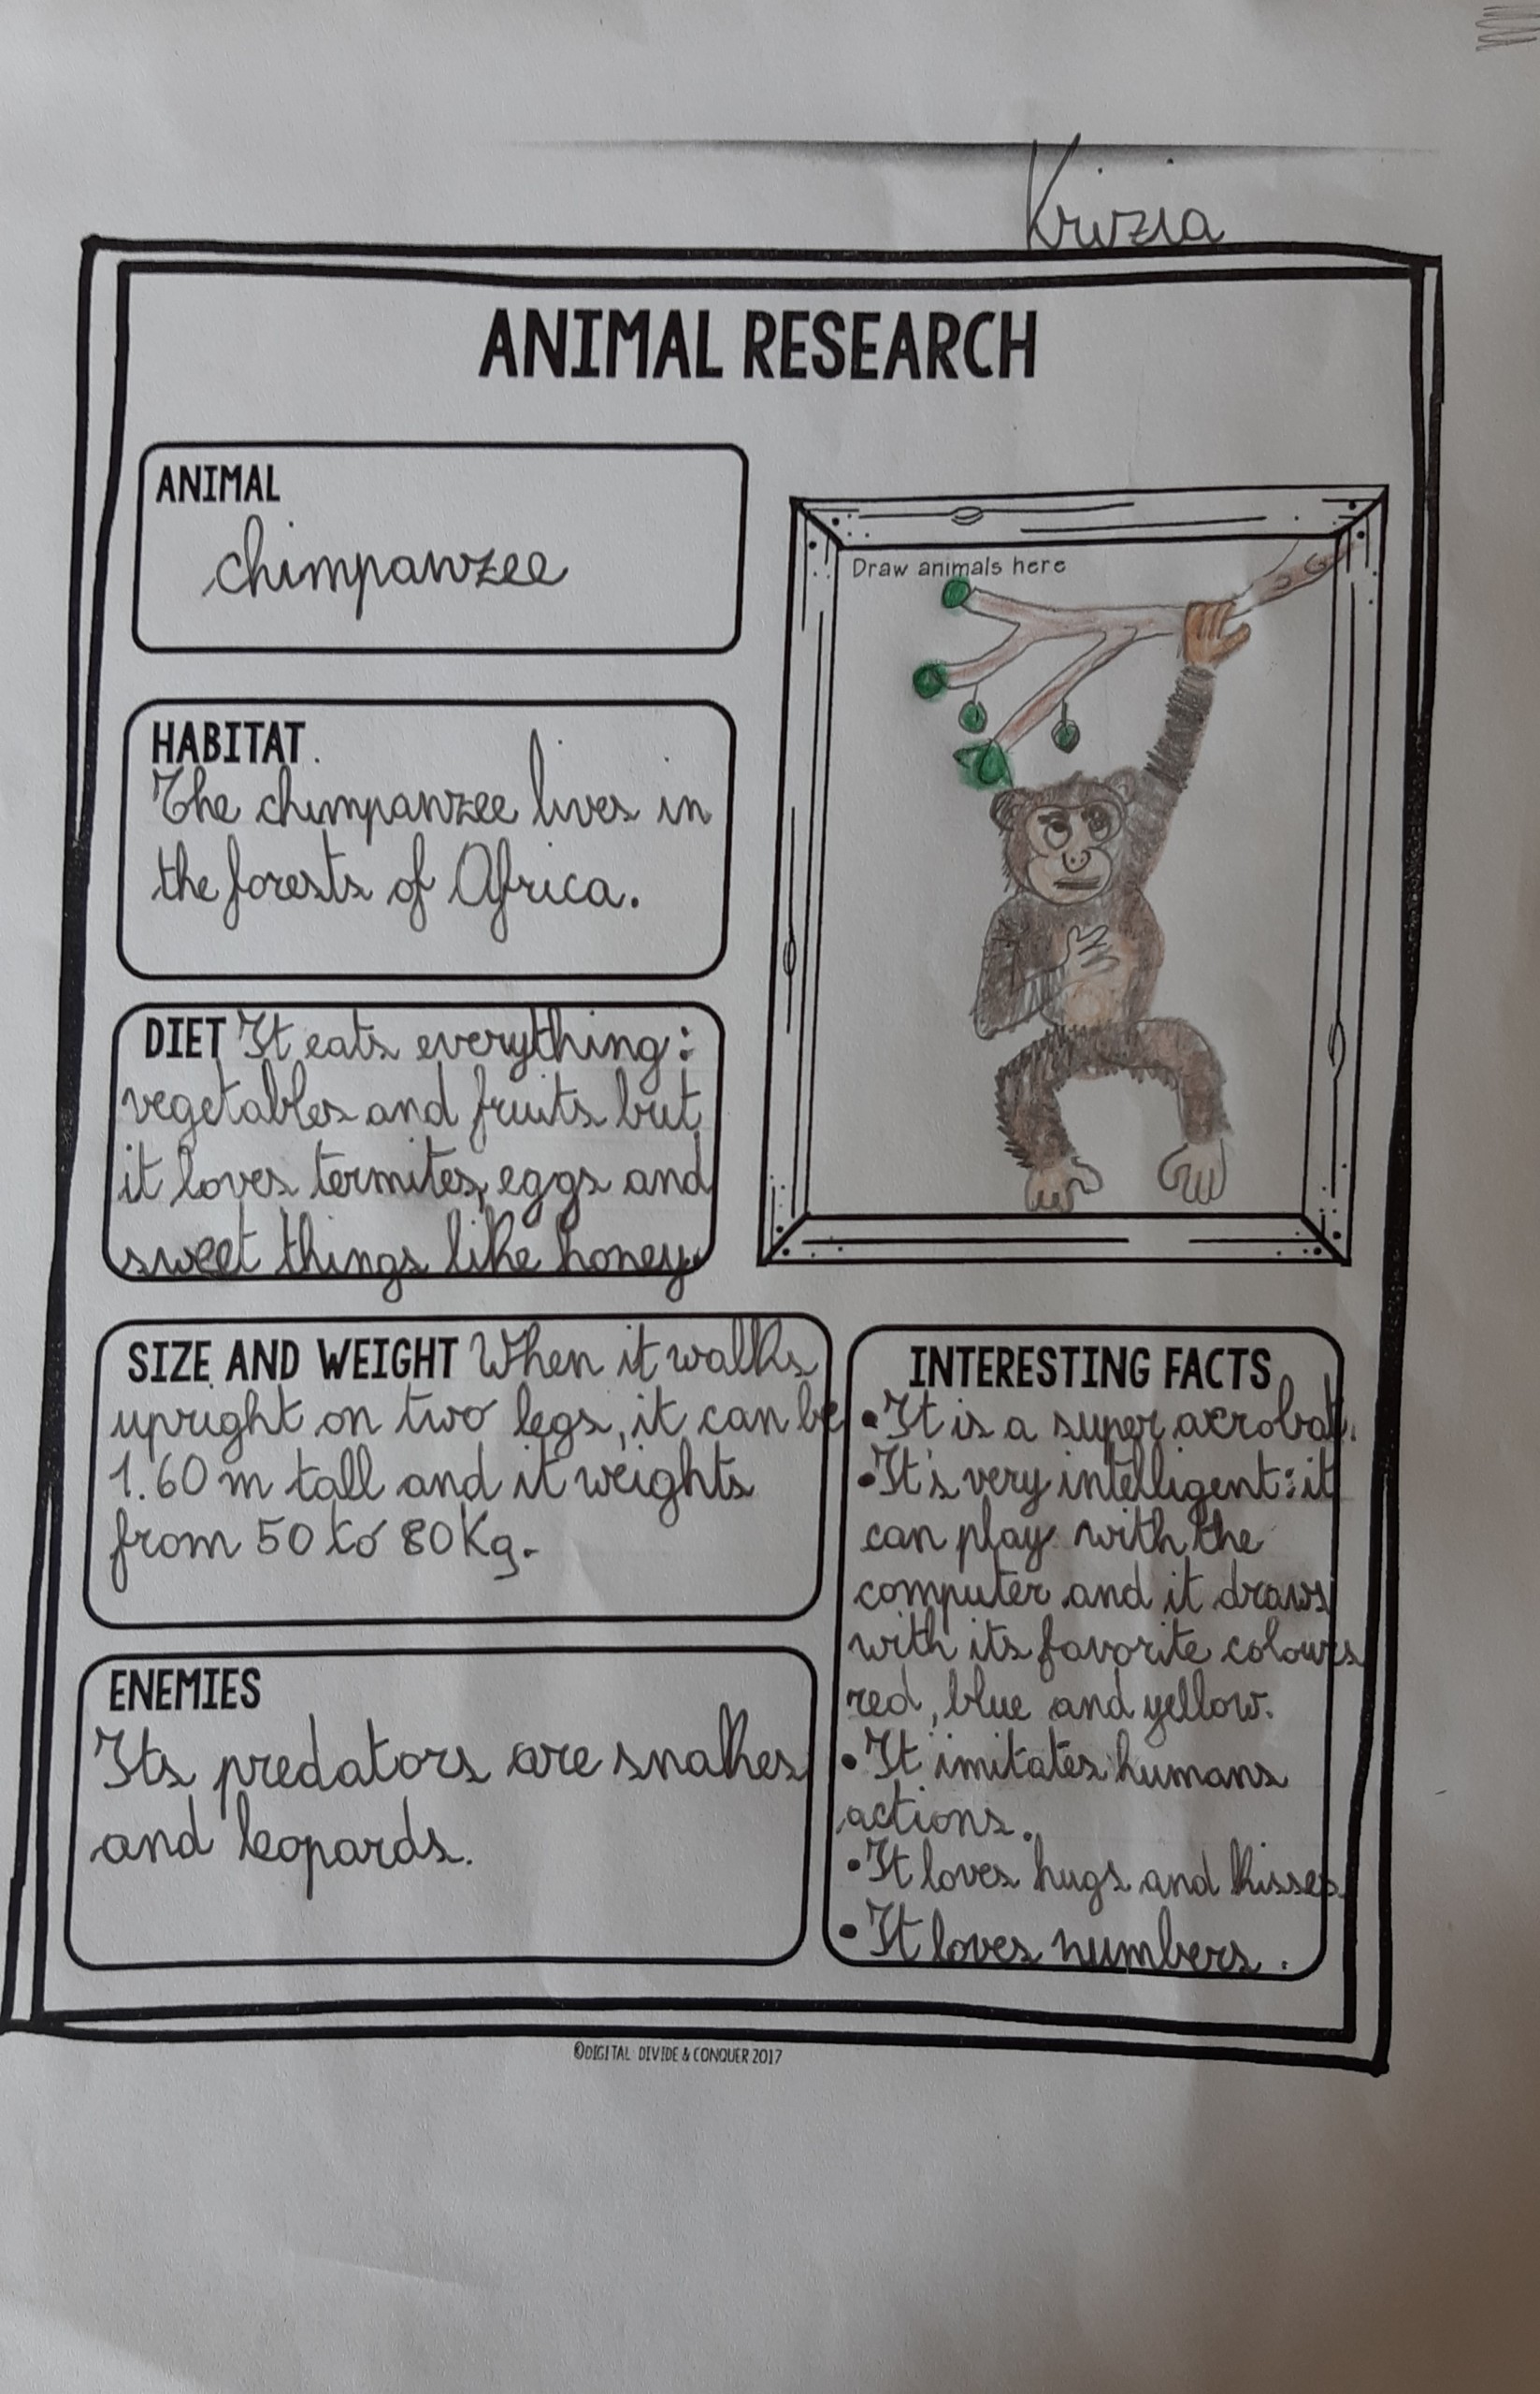 Krizia
ANIMAL RESEARCH
ANIMAL
chimpanzee
Draw animals here
HABITAT
The chimpanzee lives in
the forests of Africa.
DIET It eats everything:
vegetables and fruits but
it loves termites, eggs and
sweet things like honey.
SIZE AND WEIGHT When it walks
upright on two legs, it can be
1.60 m tall and it weights
from 50 to 80 Kg.
ENEMIES
Its predators are snakes
and leopards.
INTERESTING FACTS
• It is a super acrobat.
• It's very intelligent: it
can play with the
computer and it draws
with its favorite colours
red, blue and yellow.
• It imitates humans
actions.
• It loves hugs and kisses.
• It loves numbers.
©DIGITAL DIVIDE & CONQUER 2017